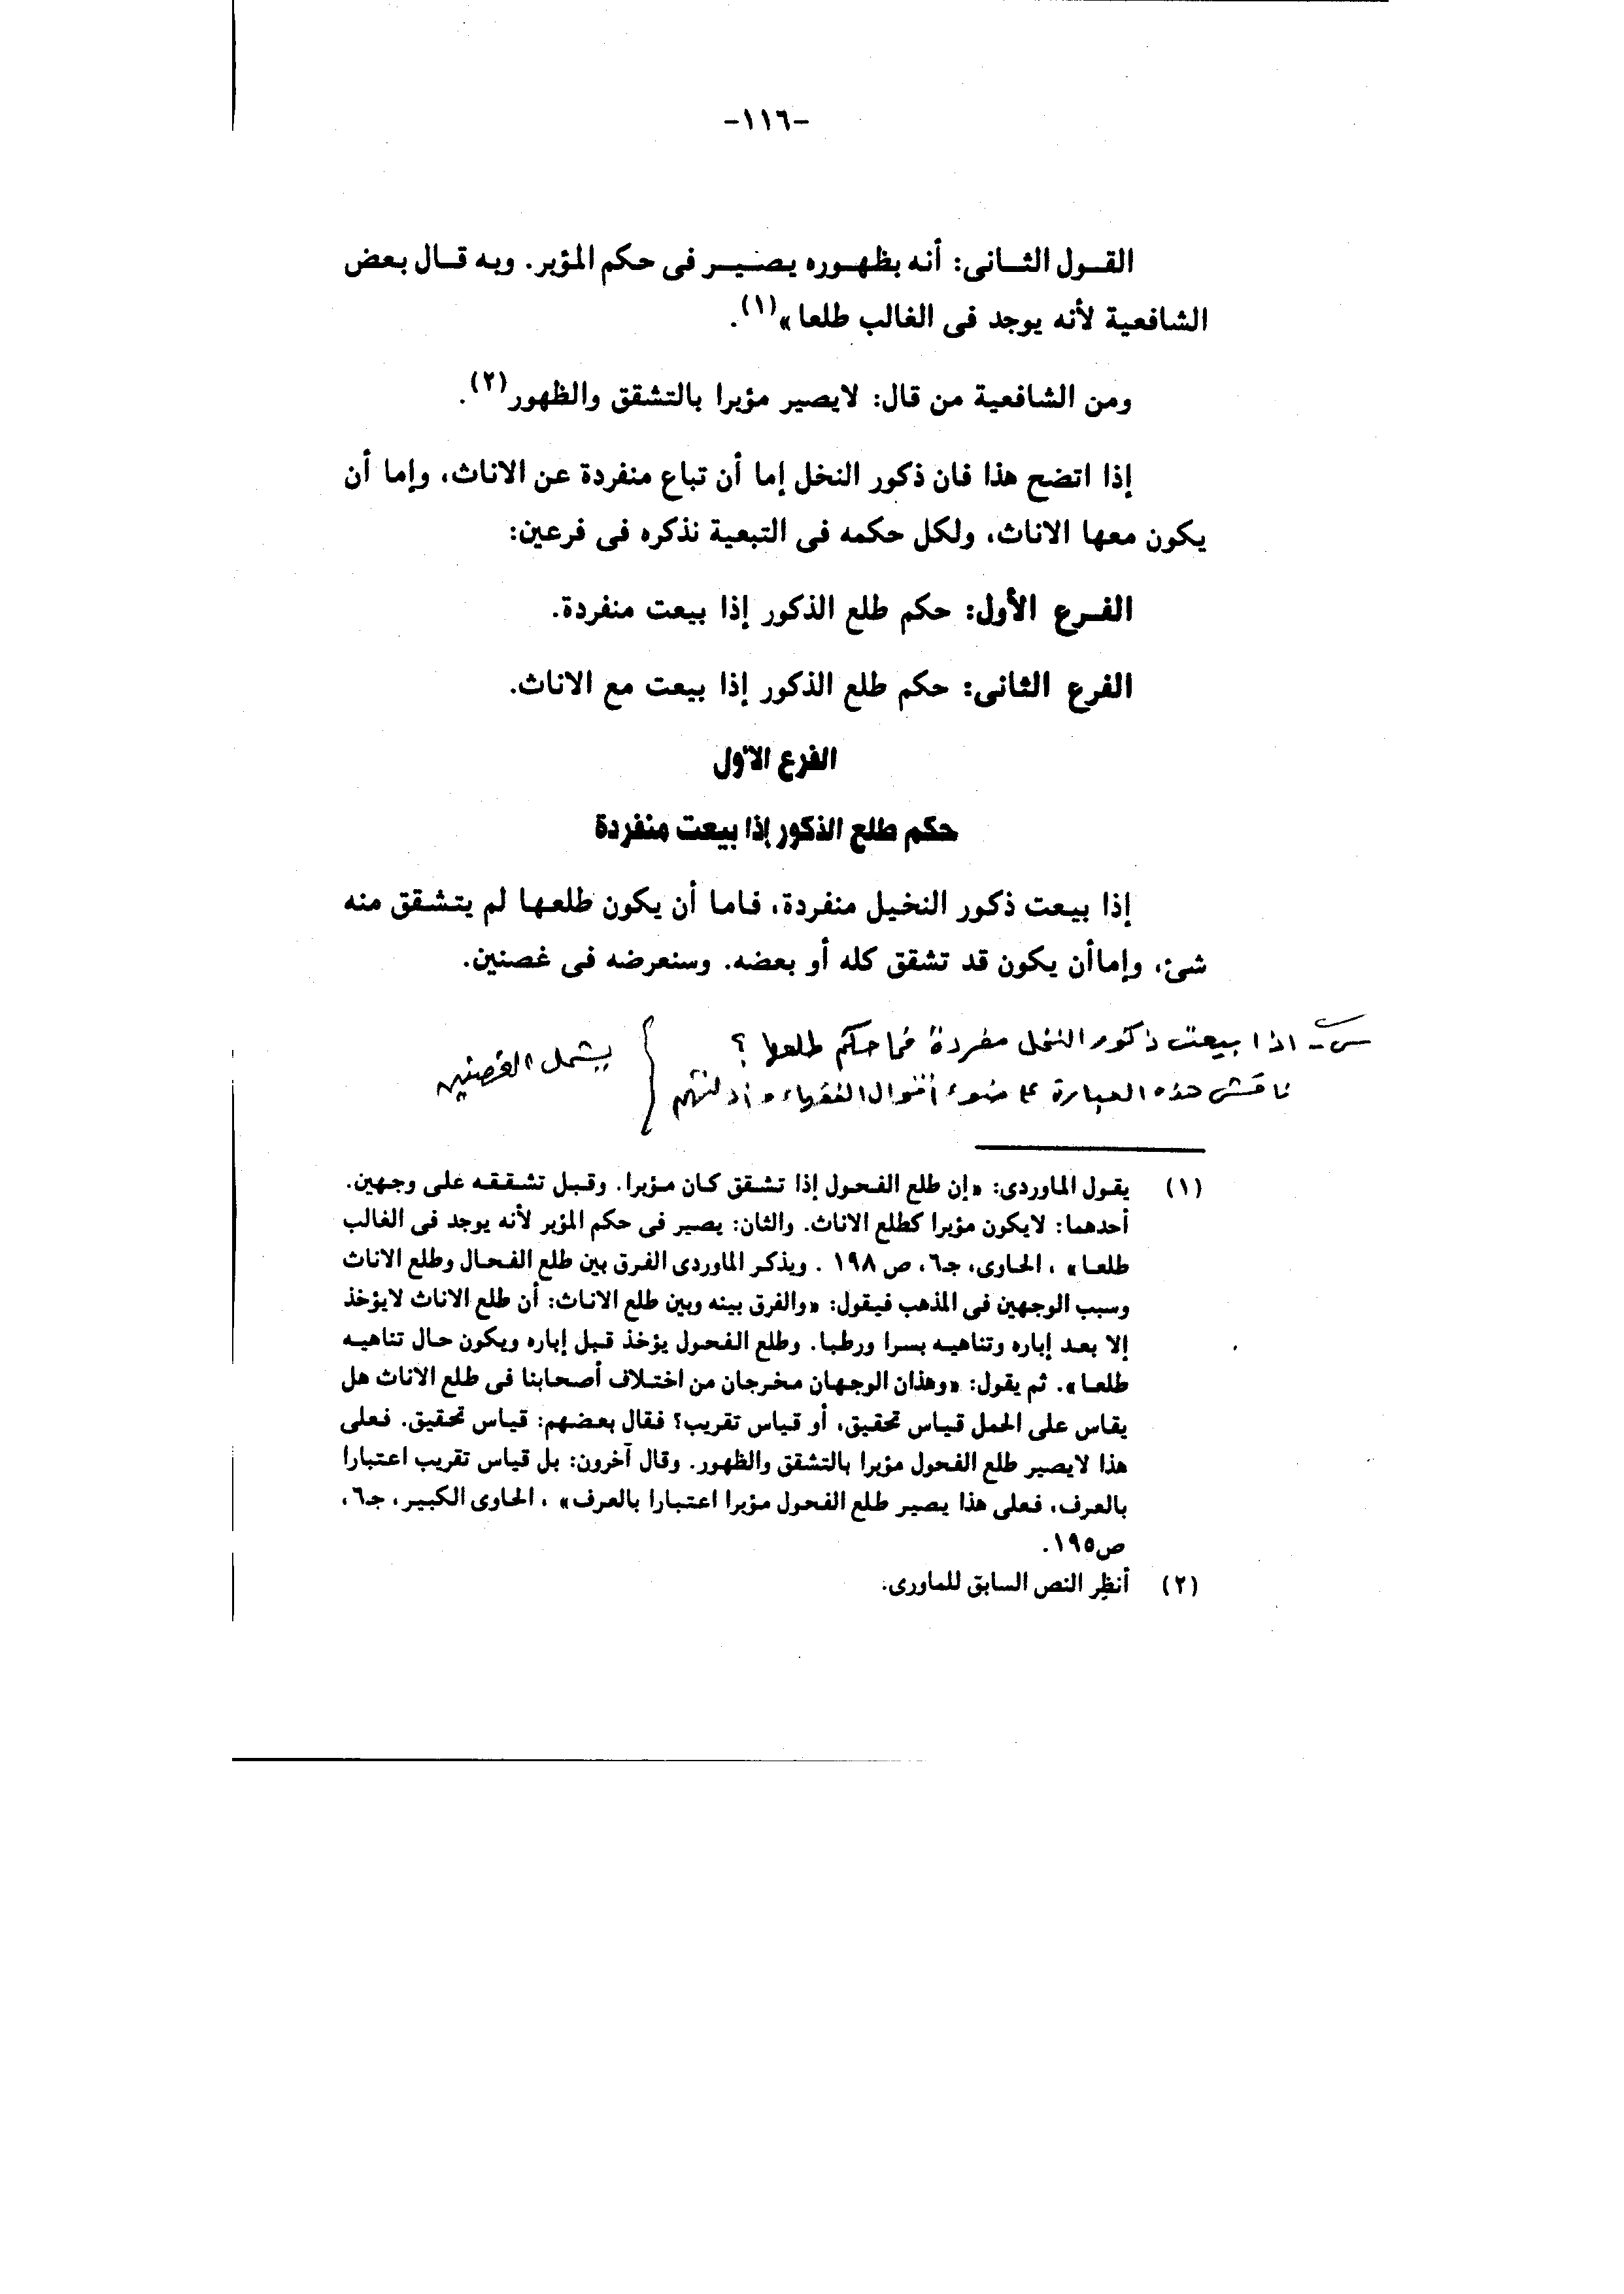 -١١٦-
القول الثانى: أنه بظهوره يصير فى حكم المؤبر. وبه قال بعض
الشافعية لأنه يوجد فى الغالب طلعا»(١).
ومن الشافعية من قال: لايصير مؤبرا بالتشقق والظهور(٢).
إذا اتضح هذا فان ذكور النخل إما أن تباع منفردة عن الاناث، وإما أن
يكون معها الاناث، ولكل حكمه فى التبعية نذكره فى فرعين:
الفرع الأول: حكم طلع الذكور إذا بيعت منفردة.
الفرع الثانى: حكم طلع الذكور إذا بيعت مع الاناث.
الفرع الأول
حكم طلع الذكور إذا بيعت منفردة
إذا بيعت ذكور النخيل منفردة، فاما أن يكون طلعها لم يتشقق منه
شئ، وإماأن يكون قد تشقق كله أو بعضه. وسنعرضه فى غصنين.
س - اذا بيعت ذكور النخل مفردة فما حكم طلعها ؟
ناقش هذه العبارة على ضوء أقوال الفقهاء وأدلتهم } يشمل الغصنين
(١) يقول الماوردى: «إن طلع الفحول إذا تشقق كان مؤبرا. وقبل تشققه على وجهين.
أحدهما: لايكون مؤبرا كطلع الاناث. والثان: يصير فى حكم المؤبر لأنه يوجد فى الغالب
طلعا» ، الحاوى، جـ٦، ص ١٩٨ . ويذكر الماوردى الفرق بين طلع الفحال وطلع الاناث
وسبب الوجهين فى المذهب فيقول: «والفرق بينه وبين طلع الاناث: أن طلع الاناث لايؤخذ
إلا بعد إباره وتناهيه بسرا ورطبا. وطلع الفحول يؤخذ قبل إباره ويكون حال تناهيه
طلعا». ثم يقول: «وهذان الوجهان مخرجان من اختلاف أصحابنا فى طلع الاناث هل
يقاس على الحمل قياس تحقيق، أو قياس تقريب؟ فقال بعضهم: قياس تحقيق. فعلى
هذا لايصير طلع الفحول مؤبرا بالتشقق والظهور. وقال آخرون: بل قياس تقريب اعتبارا
بالعرف، فعلى هذا يصير طلع الفحول مؤبرا اعتبارا بالعرف» ، الحاوى الكبير، جـ٦،
ص١٩٥.
(٢) أنظر النص السابق للماورى.